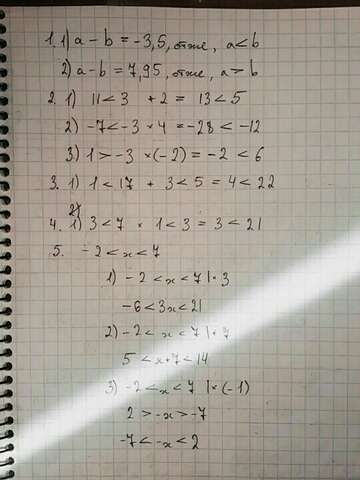 1. 1) a - b = -3,5, отже, a < b
2) a - b = 7,95, отже, a > b
2. 1) 11 < 3 + 2 = 13 < 5
2) -7 < -3 × 4 = -28 < -12
3) 1 > -3 × (-2) = -2 < 6
3. 1) 1 < 17 + 3 < 5 = 4 < 22
2)
4. 1) 3 < 7 × 1 < 3 = 3 < 21
5. -2 < x < 7
1) -2 < x < 7 | × 3
-6 < 3x < 21
2) -2 < x < 7 |
5 < x + 7 < 14
3) -2 < x < 7 | × (-1)
2 > -x > -7
-7 < -x < 2